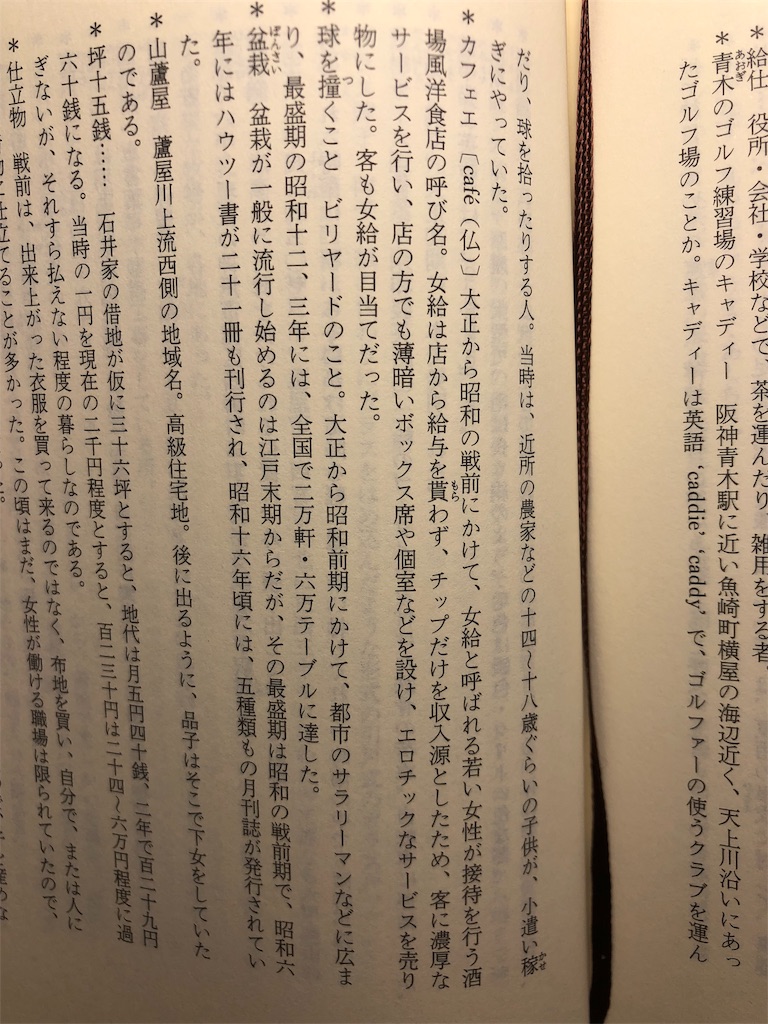 ＊給仕　役所・会社・学校などで、茶を運んだり、雑用をする者。
＊青木のゴルフ練習場のキャディー　阪神青木駅に近い魚崎町横屋の海辺近く、天上川沿いにあっ
たゴルフ場のことか。キャディーは英語‘caddie’‘caddy’で、ゴルファーの使うクラブを運ん
だり、球を拾ったりする人。当時は、近所の農家などの十四〜十八歳ぐらいの子供が、小遣い稼
ぎにやっていた。
＊カフェエ　〔café（仏）〕大正から昭和の戦前にかけて、女給と呼ばれる若い女性が接待を行う酒
場風洋食店の呼び名。女給は店から給与を貰わず、チップだけを収入源としたため、客に濃厚な
サービスを行い、店の方でも薄暗いボックス席や個室などを設け、エロチックなサービスを売り
物にした。客も女給が目当てだった。
＊球を撞くこと　ビリヤードのこと。大正から昭和前期にかけて、都市のサラリーマンなどに広ま
り、最盛期の昭和十二、三年には、全国で二万軒・六万テーブルに達した。
＊盆栽　盆栽が一般に流行し始めるのは江戸末期からだが、その最盛期は昭和の戦前期で、昭和六
年にはハウツー書が二十一冊も刊行され、昭和十六年頃には、五種類もの月刊誌が発行されてい
た。
＊山蘆屋　蘆屋川上流西側の地域名。高級住宅地。後に出るように、品子はそこで下女をしていた
のである。
＊坪十五銭……　石井家の借地が仮に三十六坪とすると、地代は月五円四十銭、二年で百二十九円
六十銭になる。当時の一円を現在の二千円程度とすると、百二三十円は二十四〜六万円程度に過
ぎないが、それすら払えない程度の暮らしなのである。
＊仕立物　戦前は、出来上がった衣服を買って来るのではなく、布地を買い、自分で、または人に
仕立てることが多かった。この頃はまだ、女性が働ける職場は限られていたので、